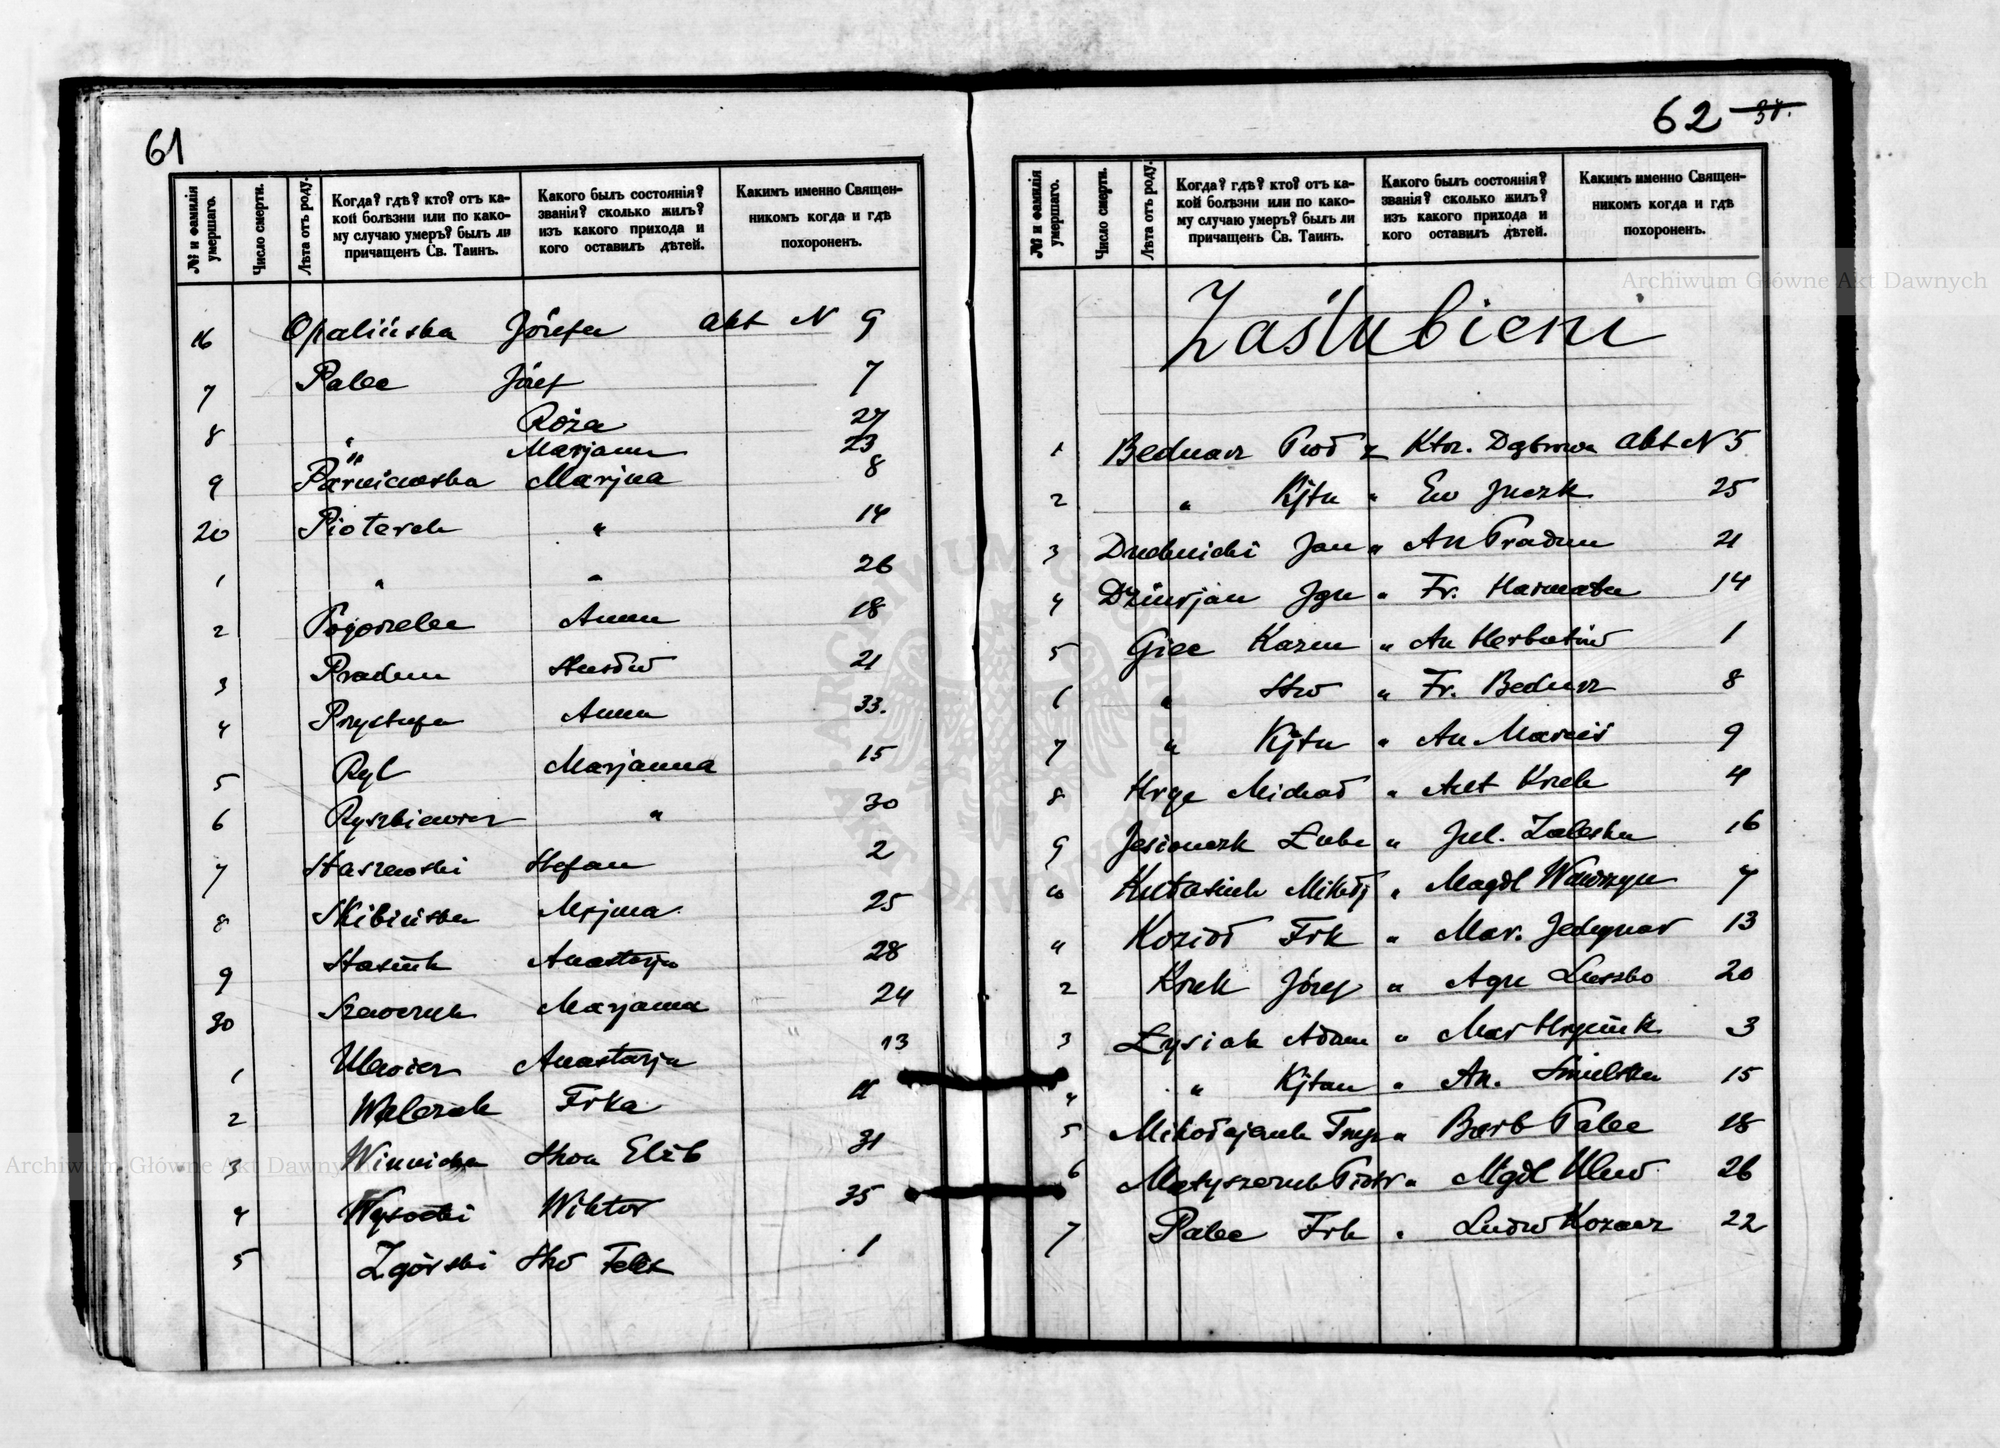 61
№ и фамилія умершаго.
Число смерти.
Лѣта отъ роду.
Когда? гдѣ? кто? отъ ка-
кой болѣзни или по како-
му случаю умеръ? былъ ли
причащенъ Св. Таинъ.
Какого былъ состоянія?
званія? сколько жилъ?
изъ какого прихода и
кого оставилъ дѣтей.
Какимъ именно Священ-
никомъ когда и гдѣ
похороненъ.
16 Opalińska Józefa akt N 9
7 Palec Józef 7
8 " Róża 27
" Marjanna 23
9 Marjna 8
20 Pioterek " 14
1 " " 26
2 Pogorzelec Anna 18
3 Pradun 21
4 Przystupa Anna 33.
5 Ryl Marjanna 15
6 Ryszkiewicz " 30
7 Staszewski Stefan 2
8 Skibińska Mrjna 25
9 Stasiuk Anastazja 28
30 Szewczyk Marjanna 24
1 Anastazja 13
2 Walczak Frka 11
3 Winnicka Skoa Elżb 31
4 Wysocki Wiktor 35
5 Zgórski Feliks 1
62 31.
№ и фамилія умершаго.
Число смерти.
Лѣта отъ роду.
Когда? гдѣ? кто? отъ ка-
кой болѣзни или по како-
му случаю умеръ? былъ ли
причащенъ Св. Таинъ.
Какого былъ состоянія?
званія? сколько жилъ?
изъ какого прихода и
кого оставилъ дѣтей.
Какимъ именно Священ-
никомъ когда и гдѣ
похороненъ.
Zaślubieni
1 Bednarz z Ktrz. Dąbrowa akt N 5
2 " Kjtn " Ew Juszk 25
3 Dudnicki Jan " An Pradun 21
4 Ign " Fr. Harmata 14
5 Giec Kazm " An 1
6 " Stw " Fr. Bednarz 8
7 " Kjtn " An 9
8 Michał " Ant Kruk 4
9 " Jul. Zaleska 16
10 Mikołj " Magdl Wawrzyn 7
11 Kozioł Frk " Mar. Jedynar 13
2 Kruk Józef " Agn 20
3 Łysiak Adam " Mar Hryciuk 3
4 " Kjtan " An. 15
5 Mikołajczuk " Barb Palec 18
6 Matyszczuk Piotr " Mgdl 26
7 Palec Frk " Ludw 22
Archiwum Główne Akt Dawnych
Archiwum Główne Akt Dawnych
ARCHIWUM GŁÓWNE AKT DAWNYCH